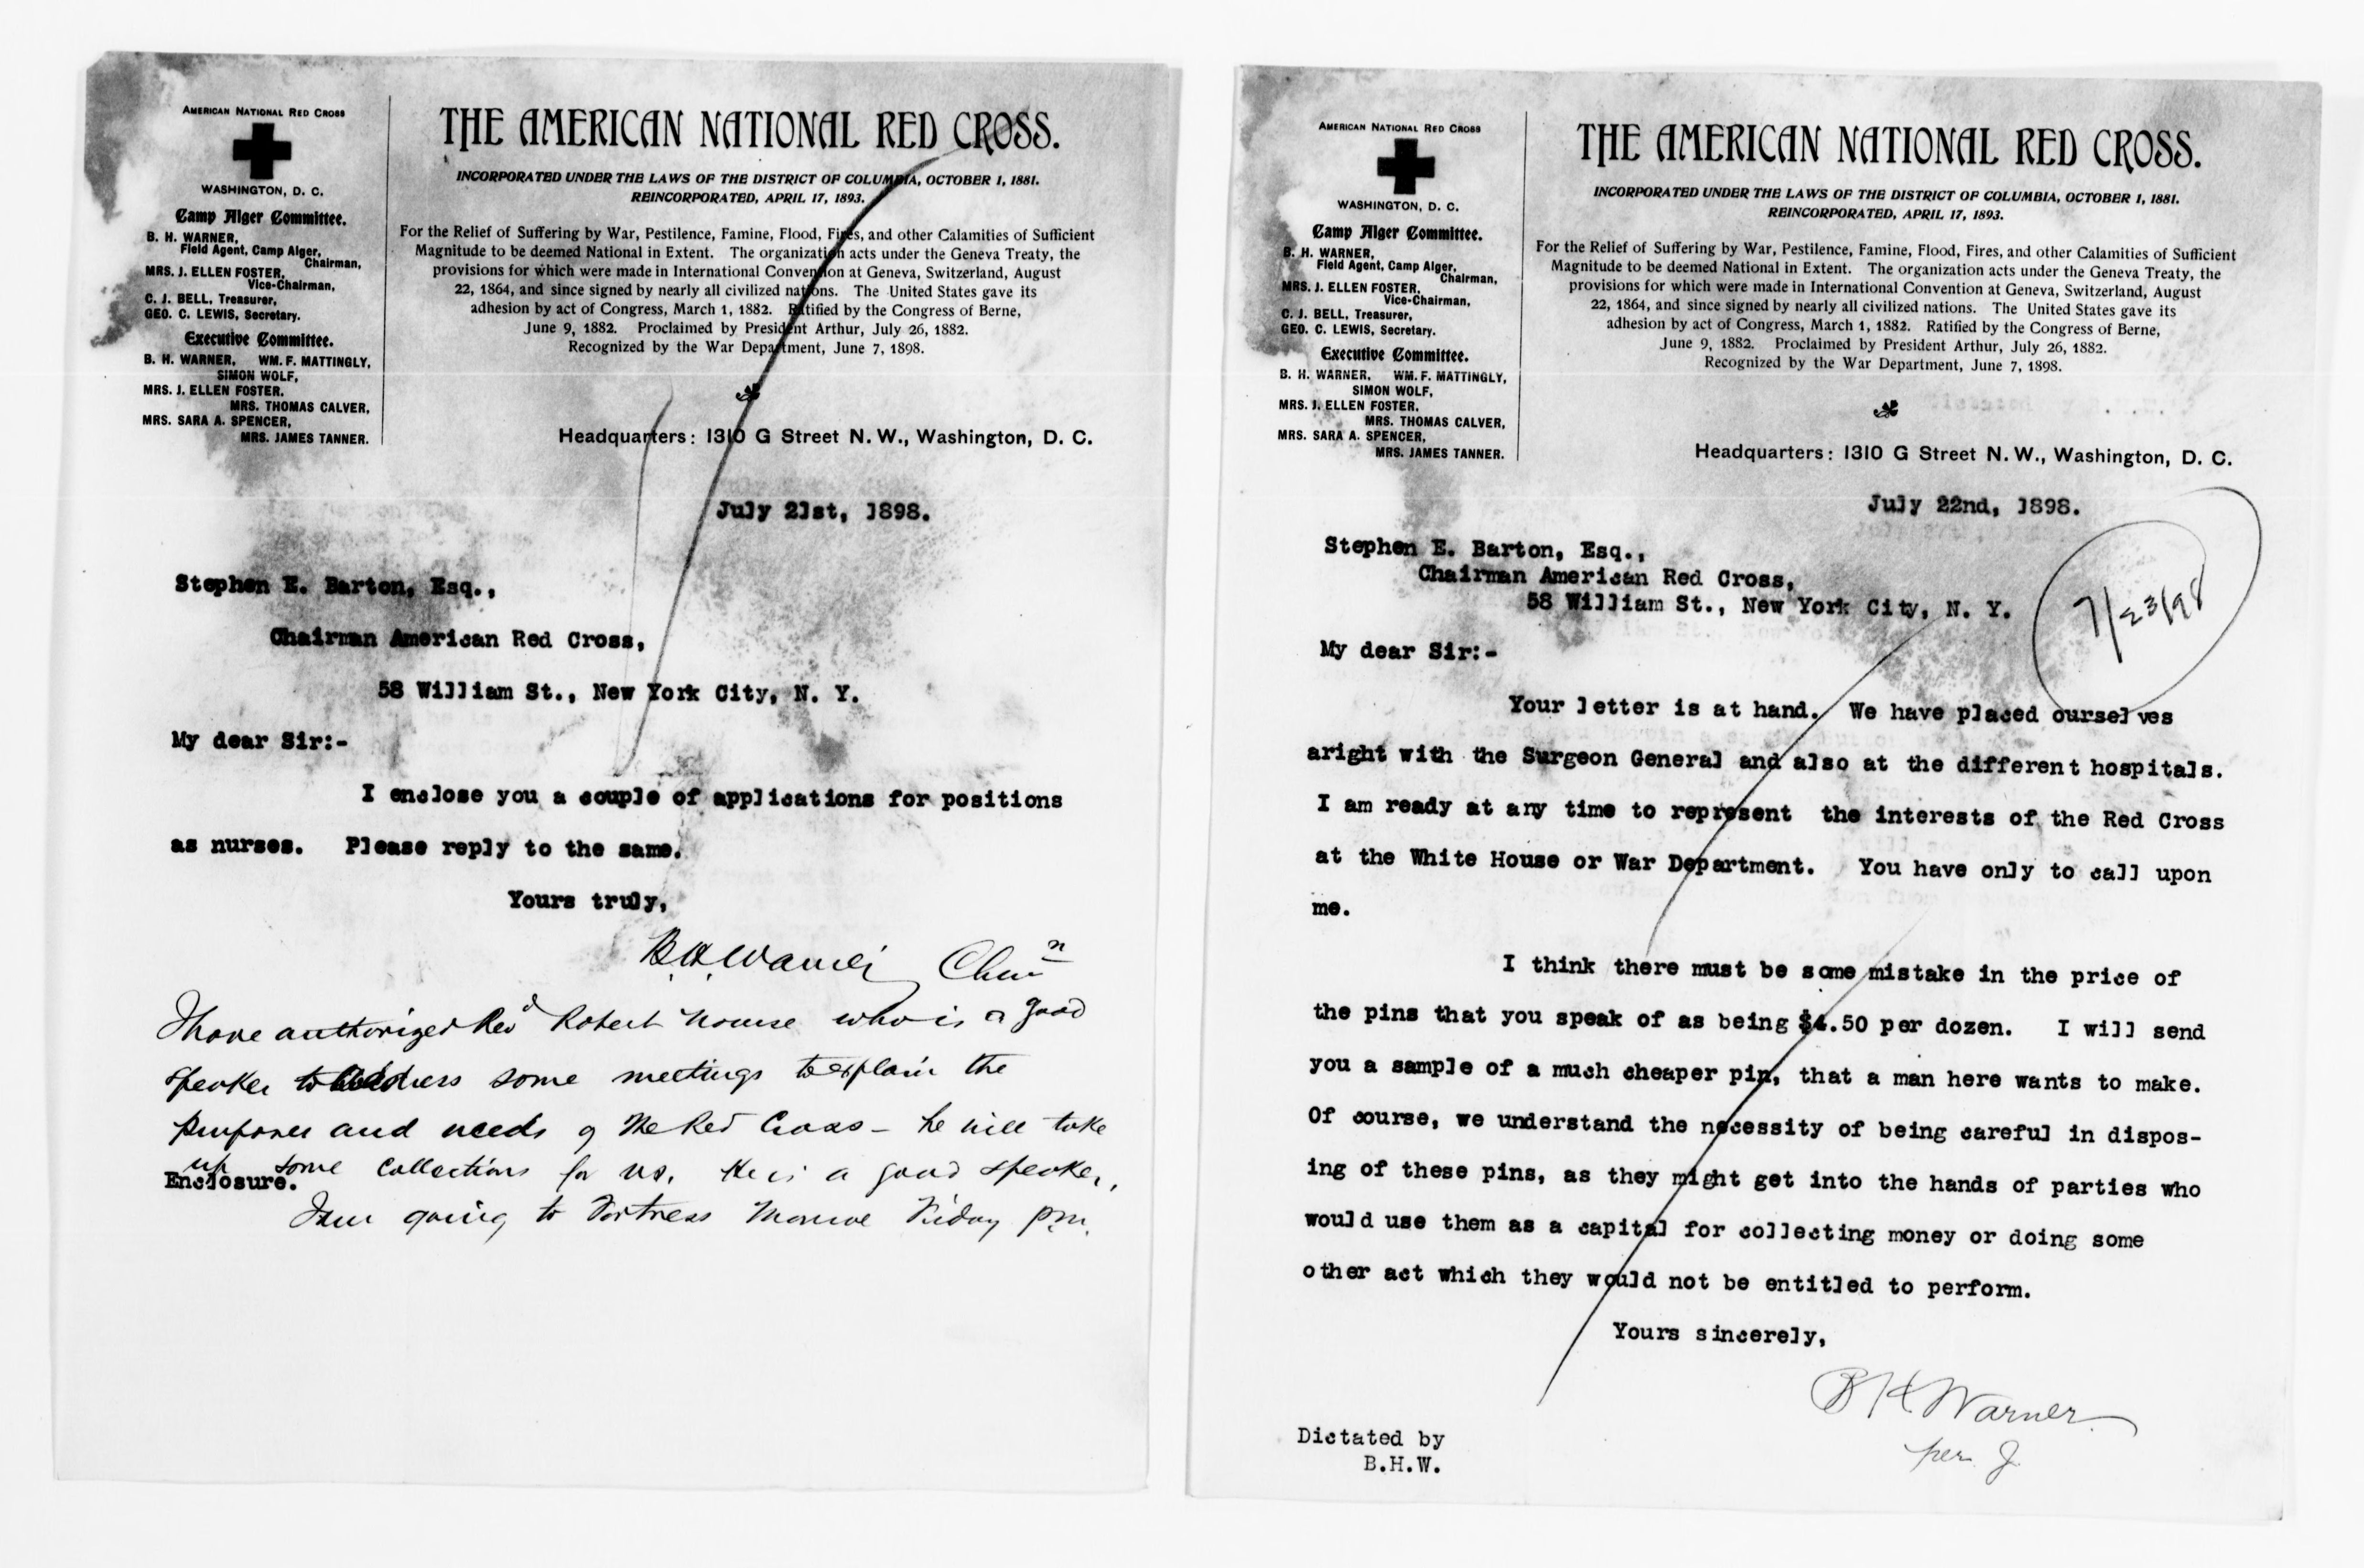 AMERICAN NATIONAL RED CROSS
WASHINGTON, D. C.
Camp Alger Committee.
B. H. WARNER,
Field Agent, Camp Alger,
Chairman,
MRS. J. ELLEN FOSTER,
Vice-Chairman,
C. J. BELL, Treasurer,
GEO. C. LEWIS, Secretary.
Executive Committee.
B. H. WARNER, WM. F. MATTINGLY,
SIMON WOLF,
MRS. J. ELLEN FOSTER,
MRS. THOMAS CALVER,
MRS. SARA A. SPENCER,
MRS. JAMES TANNER.
THE AMERICAN NATIONAL RED CROSS.
INCORPORATED UNDER THE LAWS OF THE DISTRICT OF COLUMBIA, OCTOBER 1, 1881.
REINCORPORATED, APRIL 17, 1893.
For the Relief of Suffering by War, Pestilence, Famine, Flood, Fires, and other Calamities of Sufficient
Magnitude to be deemed National in Extent. The organization acts under the Geneva Treaty, the
provisions for which were made in International Convention at Geneva, Switzerland, August
22, 1864, and since signed by nearly all civilized nations. The United States gave its
adhesion by act of Congress, March 1, 1882. Ratified by the Congress of Berne,
June 9, 1882. Proclaimed by President Arthur, July 26, 1882.
Recognized by the War Department, June 7, 1898.
Headquarters: 1310 G Street N. W., Washington, D. C.
July 21st, 1898.
Stephen E. Barton, Esq.,
Chairman American Red Cross,
58 William St., New York City, N. Y.
My dear Sir:-
I enclose you a couple of applications for positions
as nurses. Please reply to the same.
Yours truly,
B H Warner Chmn
I have authorized Revd Robert Nourse who is a good
speaker to address some meetings to explain the
purposes and needs of the Red Cross - he will take
up some collections for us. He is a good speaker.
Enclosure.
I am going to Fortress Monroe Friday p.m.
AMERICAN NATIONAL RED CROSS
WASHINGTON, D. C.
Camp Alger Committee.
B. H. WARNER,
Field Agent, Camp Alger,
Chairman,
MRS. J. ELLEN FOSTER,
Vice-Chairman,
C. J. BELL, Treasurer,
GEO. C. LEWIS, Secretary.
Executive Committee.
B. H. WARNER, WM. F. MATTINGLY,
SIMON WOLF,
MRS. J. ELLEN FOSTER,
MRS. THOMAS CALVER,
MRS. SARA A. SPENCER,
MRS. JAMES TANNER.
THE AMERICAN NATIONAL RED CROSS.
INCORPORATED UNDER THE LAWS OF THE DISTRICT OF COLUMBIA, OCTOBER 1, 1881.
REINCORPORATED, APRIL 17, 1893.
For the Relief of Suffering by War, Pestilence, Famine, Flood, Fires, and other Calamities of Sufficient
Magnitude to be deemed National in Extent. The organization acts under the Geneva Treaty, the
provisions for which were made in International Convention at Geneva, Switzerland, August
22, 1864, and since signed by nearly all civilized nations. The United States gave its
adhesion by act of Congress, March 1, 1882. Ratified by the Congress of Berne,
June 9, 1882. Proclaimed by President Arthur, July 26, 1882.
Recognized by the War Department, June 7, 1898.
Headquarters: 1310 G Street N. W., Washington, D. C.
July 22nd, 1898.
Stephen E. Barton, Esq.,
Chairman American Red Cross,
58 William St., New York City, N. Y.
7/23/98
My dear Sir:-
Your letter is at hand. We have placed ourselves
aright with the Surgeon General and also at the different hospitals.
I am ready at any time to represent the interests of the Red Cross
at the White House or War Department. You have only to call upon
me.
I think there must be some mistake in the price of
the pins that you speak of as being $4.50 per dozen. I will send
you a sample of a much cheaper pin, that a man here wants to make.
Of course, we understand the necessity of being careful in dispos-
ing of these pins, as they might get into the hands of parties who
would use them as a capital for collecting money or doing some
other act which they would not be entitled to perform.
Yours sincerely,
B H Warner
per J.
Dictated by
B.H.W.